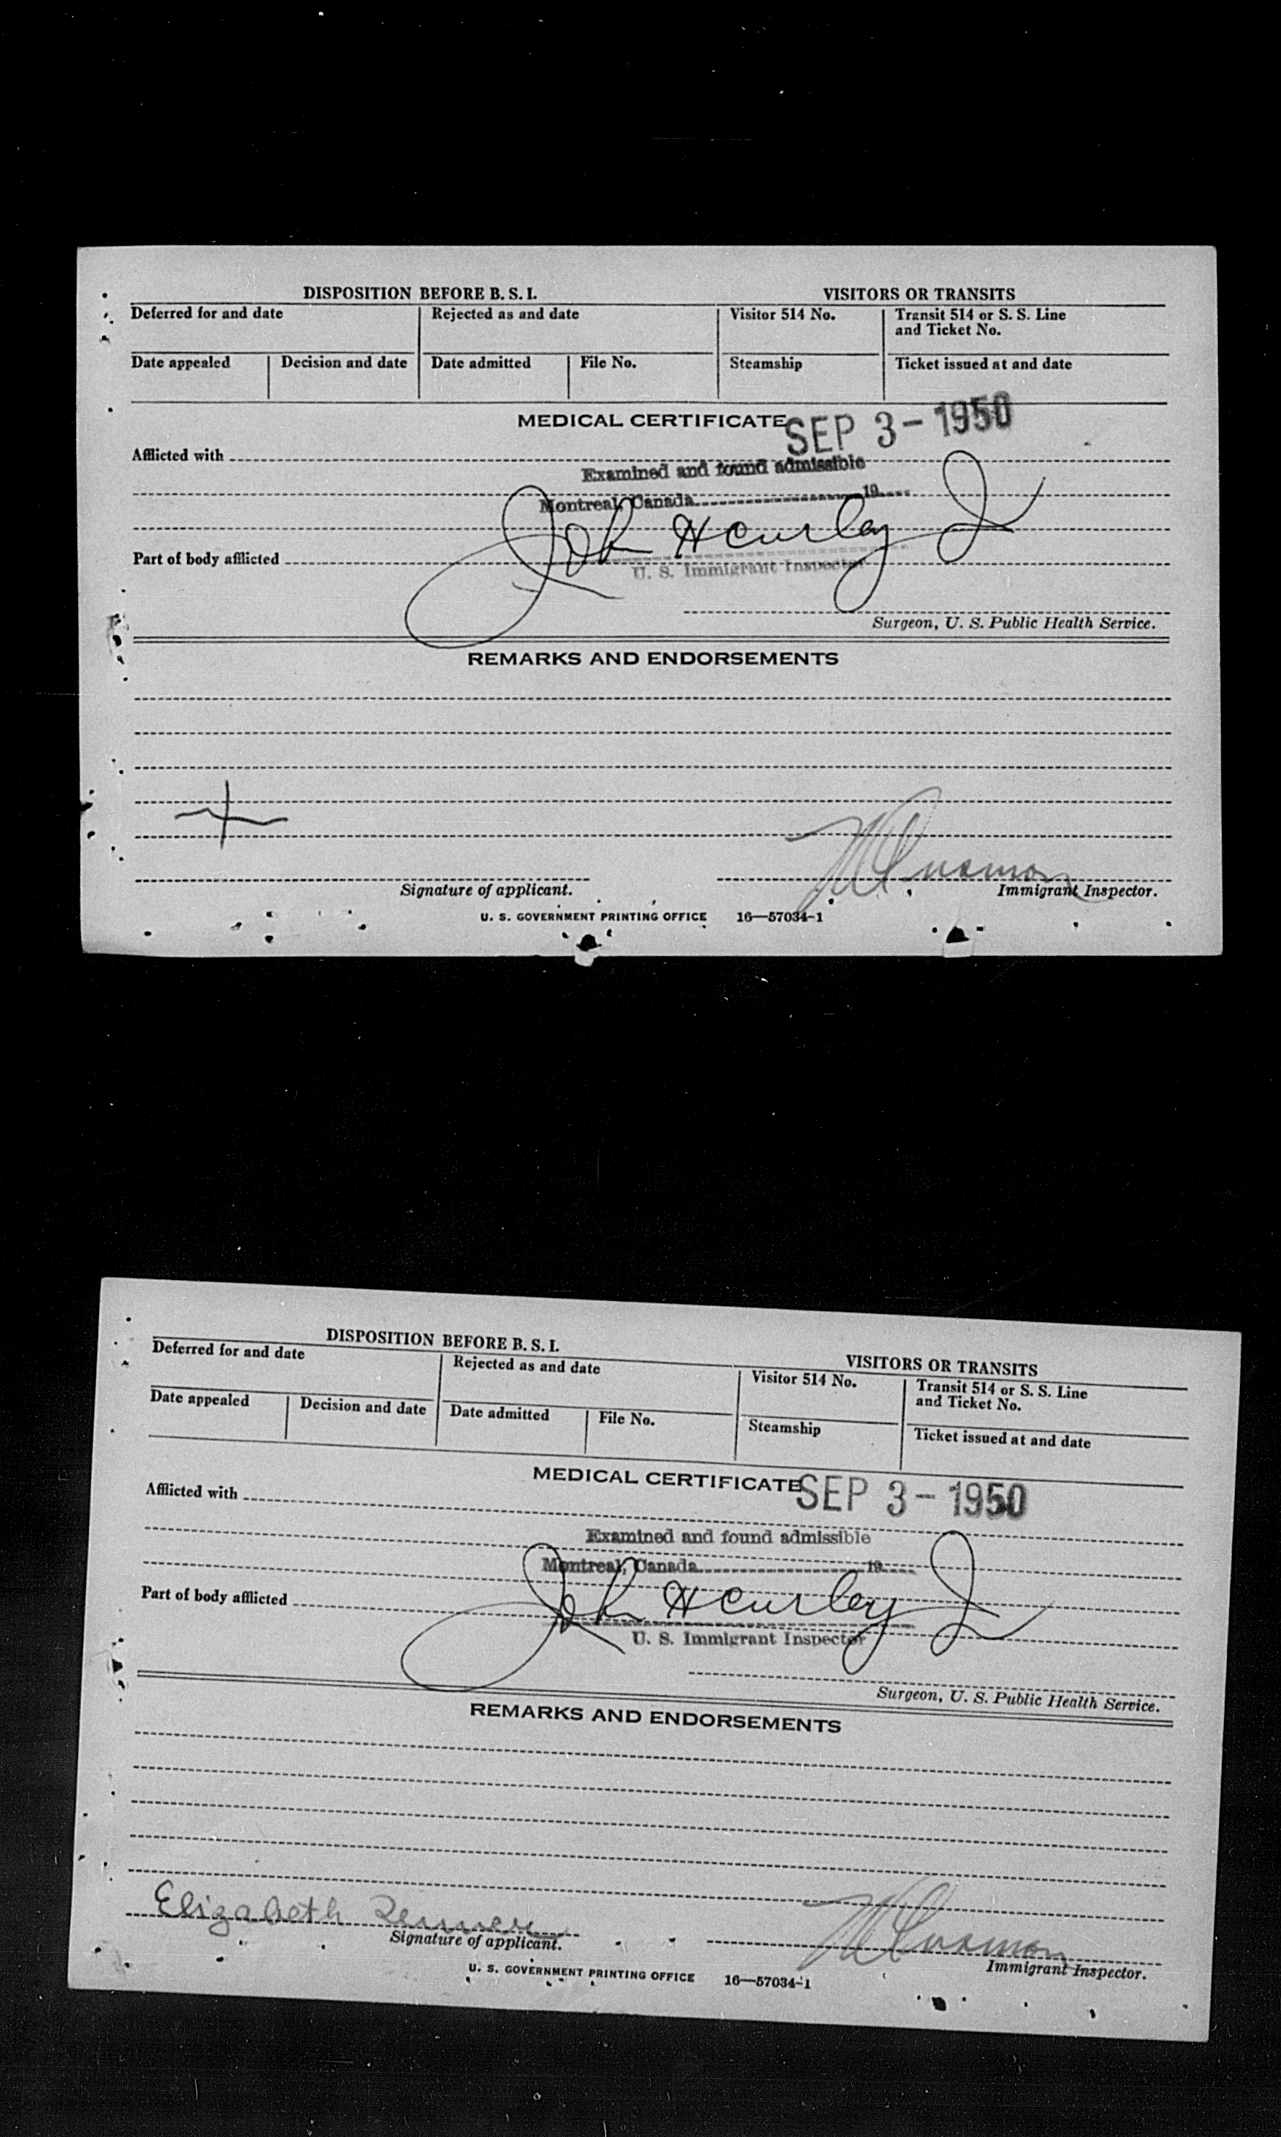 DISPOSITION BEFORE B. S. I.
VISITORS OR TRANSITS
Deferred for and date
Rejected as and date
Visitor 514 No.
Transit 514 or S. S. Line
and Ticket No.
Date appealed
Decision and date
Date admitted
File No.
Steamship
Ticket issued at and date
MEDICAL CERTIFICATE
SEP 3 - 1950
Afflicted with
Examined and found admissible
Montreal, Canada 19
John H Curley Jr
Part of body afflicted
U. S. Immigrant Inspector
Surgeon, U. S. Public Health Service.
REMARKS AND ENDORSEMENTS
Signature of applicant.
Immigrant Inspector.
U. S. GOVERNMENT PRINTING OFFICE 16—57034-1
DISPOSITION BEFORE B. S. I.
VISITORS OR TRANSITS
Deferred for and date
Rejected as and date
Visitor 514 No.
Transit 514 or S. S. Line
and Ticket No.
Date appealed
Decision and date
Date admitted
File No.
Steamship
Ticket issued at and date
MEDICAL CERTIFICATE
SEP 3 - 1950
Afflicted with
Examined and found admissible
Montreal, Canada 19
John H Curley Jr
Part of body afflicted
U. S. Immigrant Inspector
Surgeon, U. S. Public Health Service.
REMARKS AND ENDORSEMENTS
Elizabeth
Signature of applicant.
Immigrant Inspector.
U. S. GOVERNMENT PRINTING OFFICE 16—57034-1